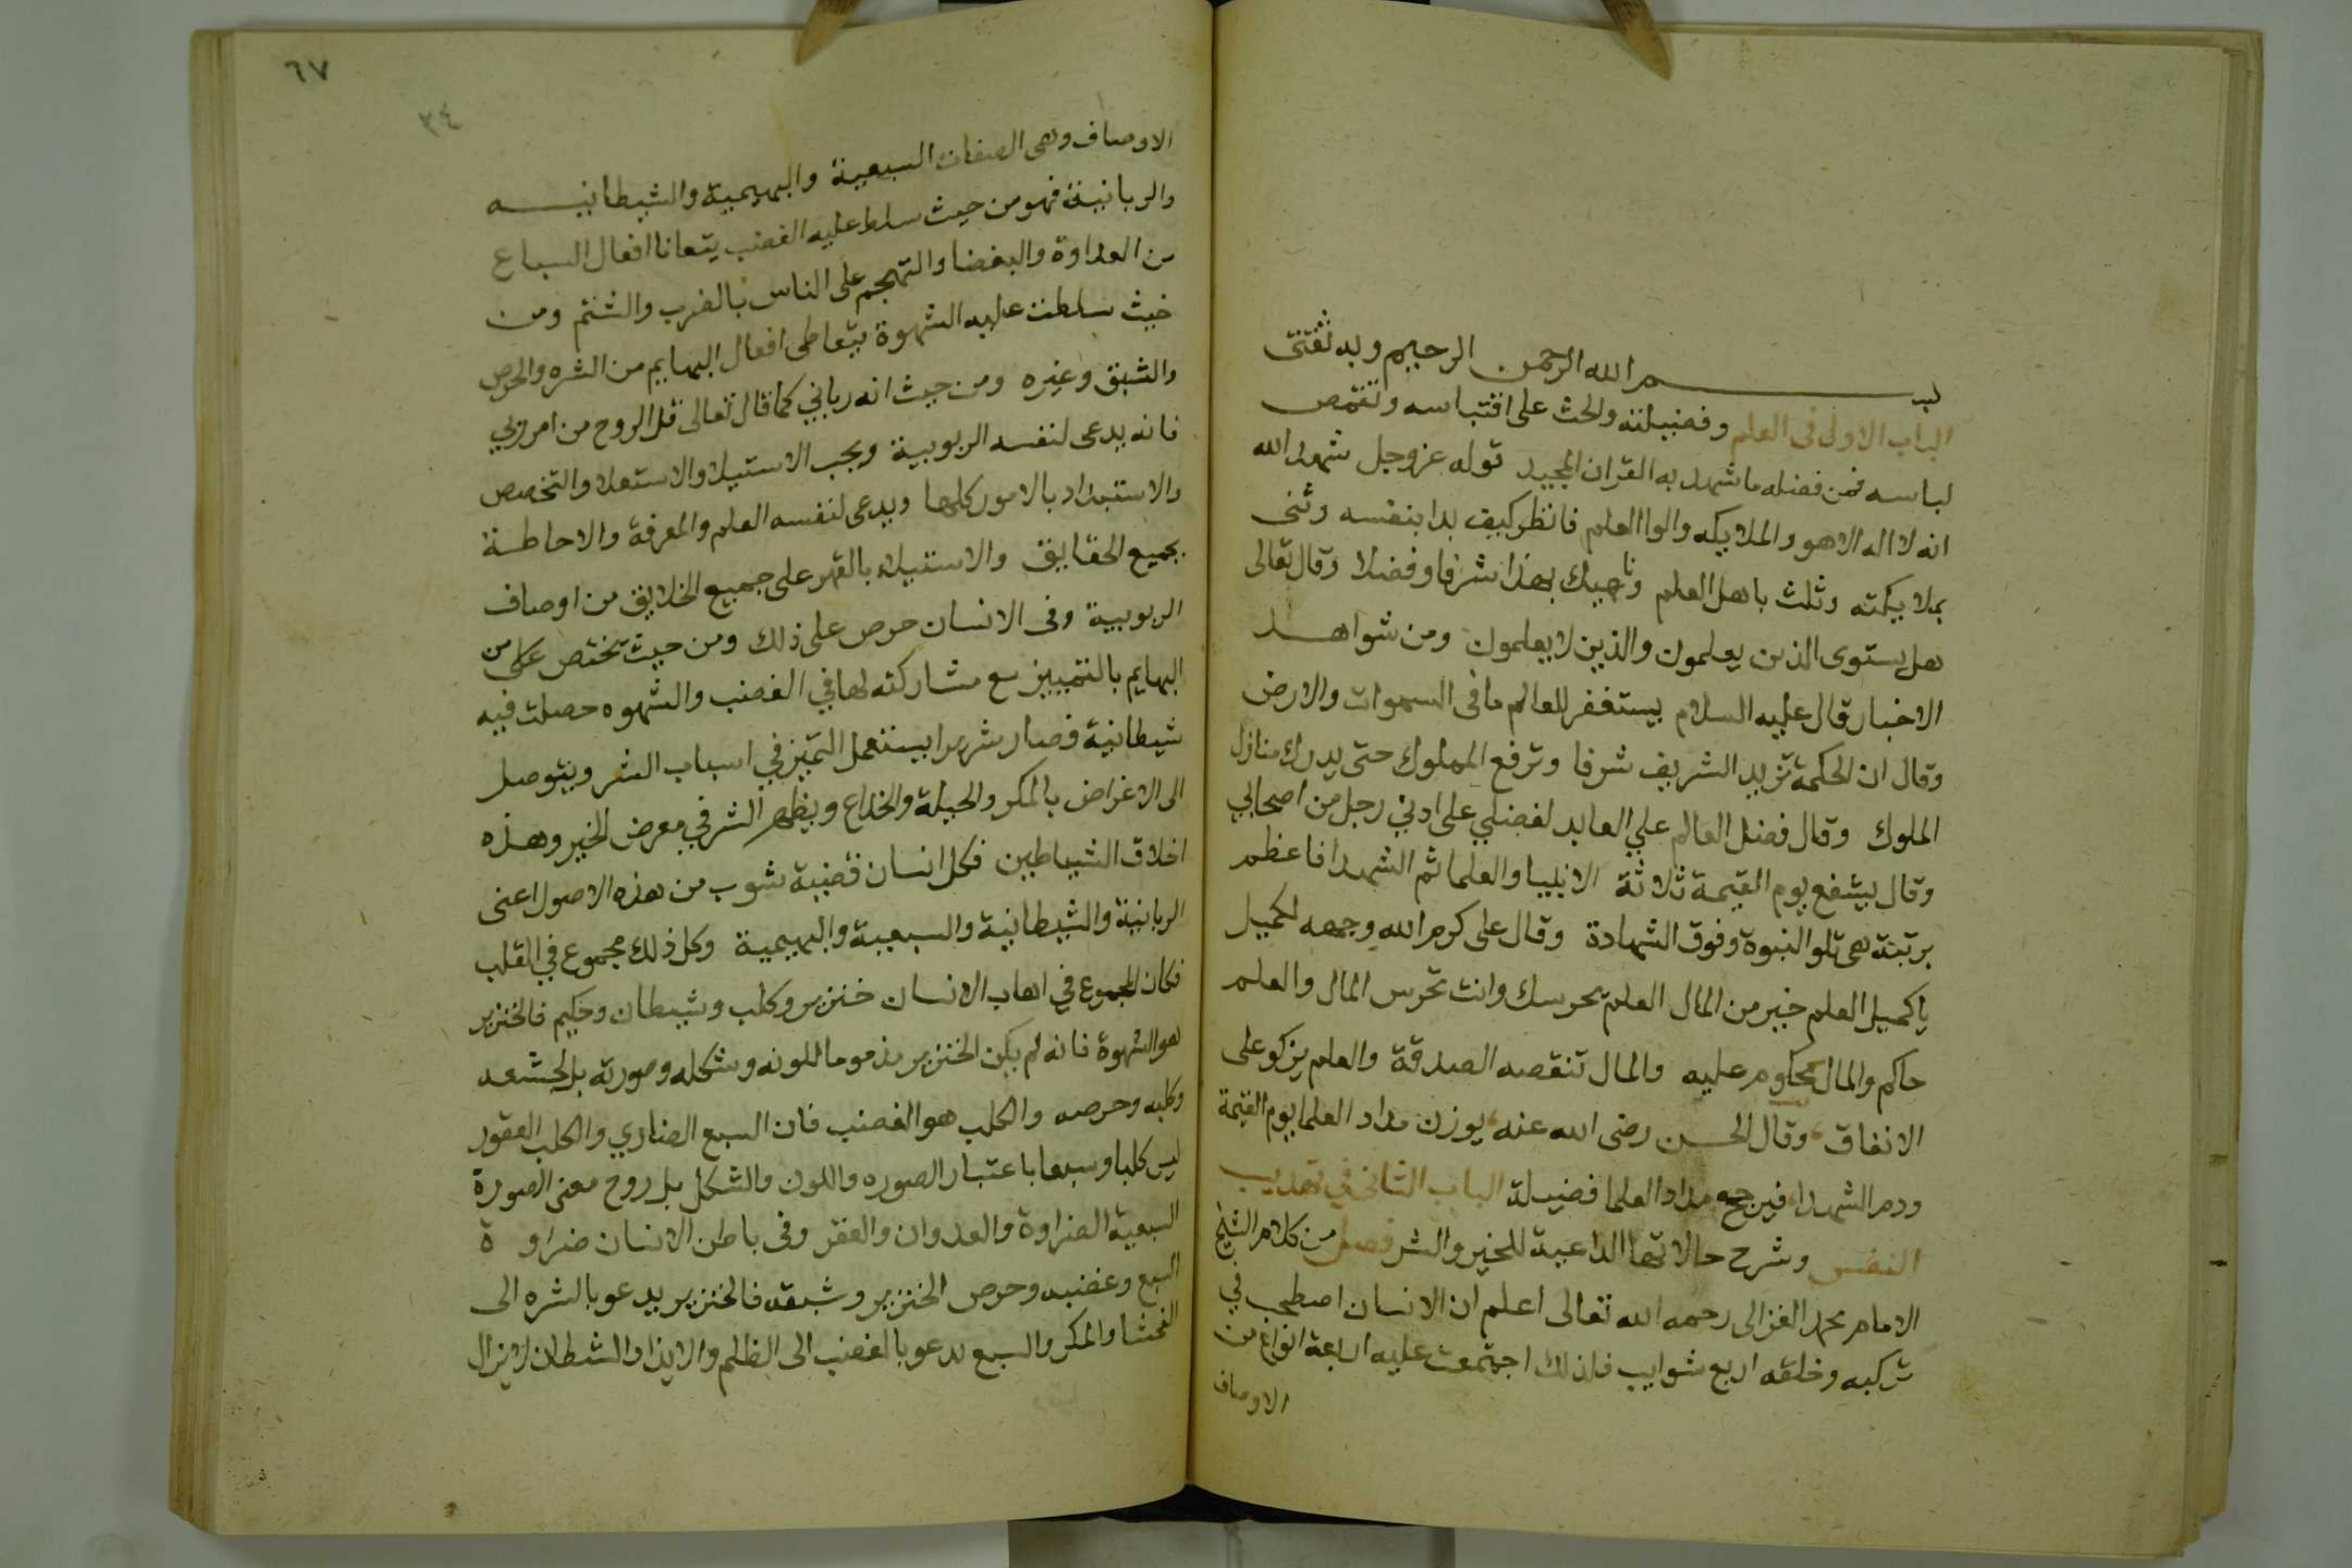 بسم الله الرحمن الرحيم وبه ثقتى
الباب الاول فى العلم وفضيلته والحث على اقتباسه وتقمص
لباسه فمن فضله ما شهد به القران المجيد قوله عز وجل شهد الله
انه لا اله الا هو والملايكه والوا العلم فانظر كيف بدا بنفسه وثنى
بملايكته وثلث باهل العلم وناهيك بهذا شرفا وفضلا وقال تعالى
هل يستوى الذين يعلمون والذين لا يعلمون ومن شواهد
الاخبار قال عليه السلام يستغفر للعالم ما فى السموات والارض
وقال ان الحكمة تزيد الشريف شرفا وترفع المملوك حتى يدرك منازل
الملوك وقال فضل العالم علي العابد لفضلي على ادني رجل من اصحابي
وقال يشفع يوم القيمة ثلاثة الانبيا والعلما ثم الشهدا فاعظم
برتبة هى تلو النبوة وفوق الشهادة وقال على كرم الله وجهه لكميل
ياكميل العلم خير من المال العلم يحرسك وانت تحرس المال والعلم
حاكم والمال محكوم عليه والمال تنقصه الصدقة والعلم يزكو على
الانفاق وقال الحسن رضى الله عنه يوزن مداد العلما يوم القيمة
ودم الشهدا فيرجح مداد العلما فضيلة الباب الثانى في تهذيب
النفس وشرح حالاتها الداعية للخير والشر فصل من كلام الشيخ
الامام محمد الغزالى رحمه الله تعالى اعلم ان الانسان اصطحب في
تركبه وخلقه اربع شوايب فلذلك اجتمعت عليه اربعة انواع من
الاوصاف
٦٧
٣٤
الاوصاف وهى الصفات السبعية والبهيمية والشيطانيه
والربانية فهو من حيث سلط عليه الغضب يتعانا افعال السباع
من العداوة والبغضا والتهجم على الناس بالضرب والشتم ومن
حيث سلطت عليه الشهوة يتعاطى افعال البهايم من الشره والحرص
والشبق وغيره ومن حيث انه رباني كما قال تعالى قل الروح من امر ربي
فانه يدعى لنفسه الربوبية ويحب الاستيلا والاستعلا والتخصص
والاستبداد بالامور كلها ويدعى لنفسه العلم والمعرفة والاحاطة
بجميع الحقايق والاستيلاء بالقهر على جميع الخلايق من اوصاف
الربوبية وفى الانسان حرص على ذلك ومن حيث تختص على من
البهايم بالتمييز مع مشاركته لها في الغضب والشهوه حصلت فيه
شيطانية فصار شريرا يستعمل التميز في اسباب الشر ويتوصل
الى الاغراض بالمكر والحيلة والخداع ويظهر الشر في معرض الخير وهذه
اخلاق الشياطين فكل انسان ففيه شوب من هذه الاصول اعنى
الربانية والشيطانية والسبعية والبهيمية وكل ذلك مجموع في القلب
فكان المجموع في اهاب الانسان خنزير وكلب وشيطان وحكيم فالخنزير
هو الشهوة فانه لم يكن الخنزير مذموما للونه وشكله وصورته بل لجشعه
وكلبه وحرصه والكلب هو الغضب فان السبع الضاري والكلب العقور
ليس كلبا وسبعا باعتبار الصوره واللون والشكل بل روح معنى الصورة
السبعية الضراوة والعدوان والعقر وفى باطن الانسان ضراوة
السبع وغضبه وحرص الخنزير وشبقه فالخنزير يدعو بالشره الى
الفحشا والمكر والسبع يدعو بالغضب الى الظلم والايذا والشيطان لا يزال